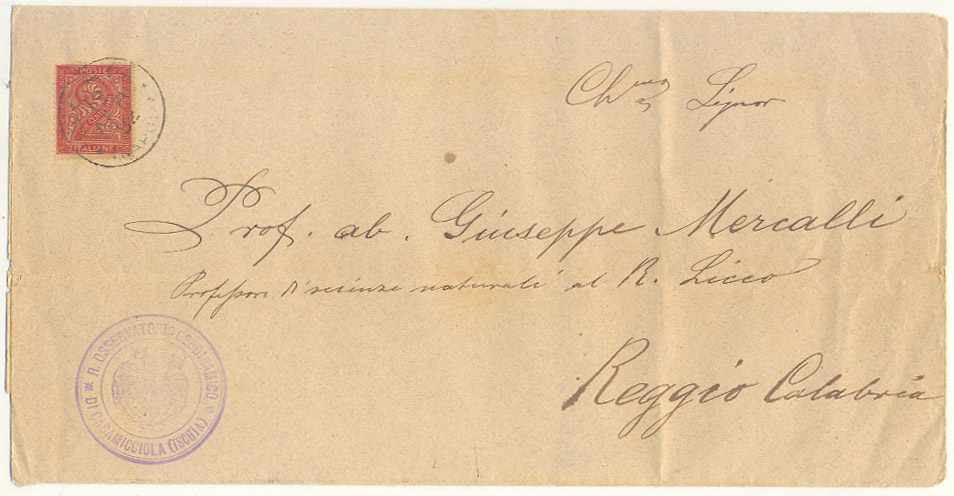 POSTE
ITALIANE
Ch.mo Signor
Prof. ab. Giuseppe Mercalli
Professore di scienze naturali al R. Liceo
Reggio Calabria
R. OSSERVATORIO GEODINAMICO
DI CASAMICCIOLA (ISCHIA)